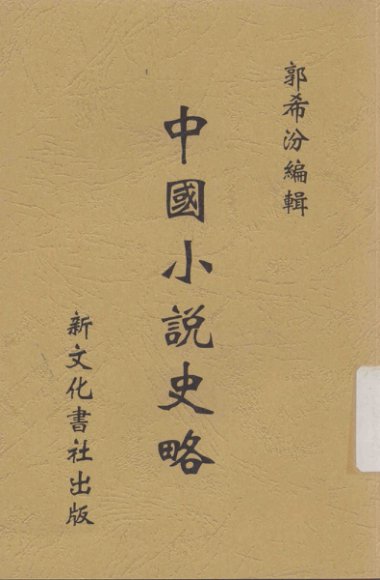 郭希汾編輯
中國小説史略
新文化書社出版